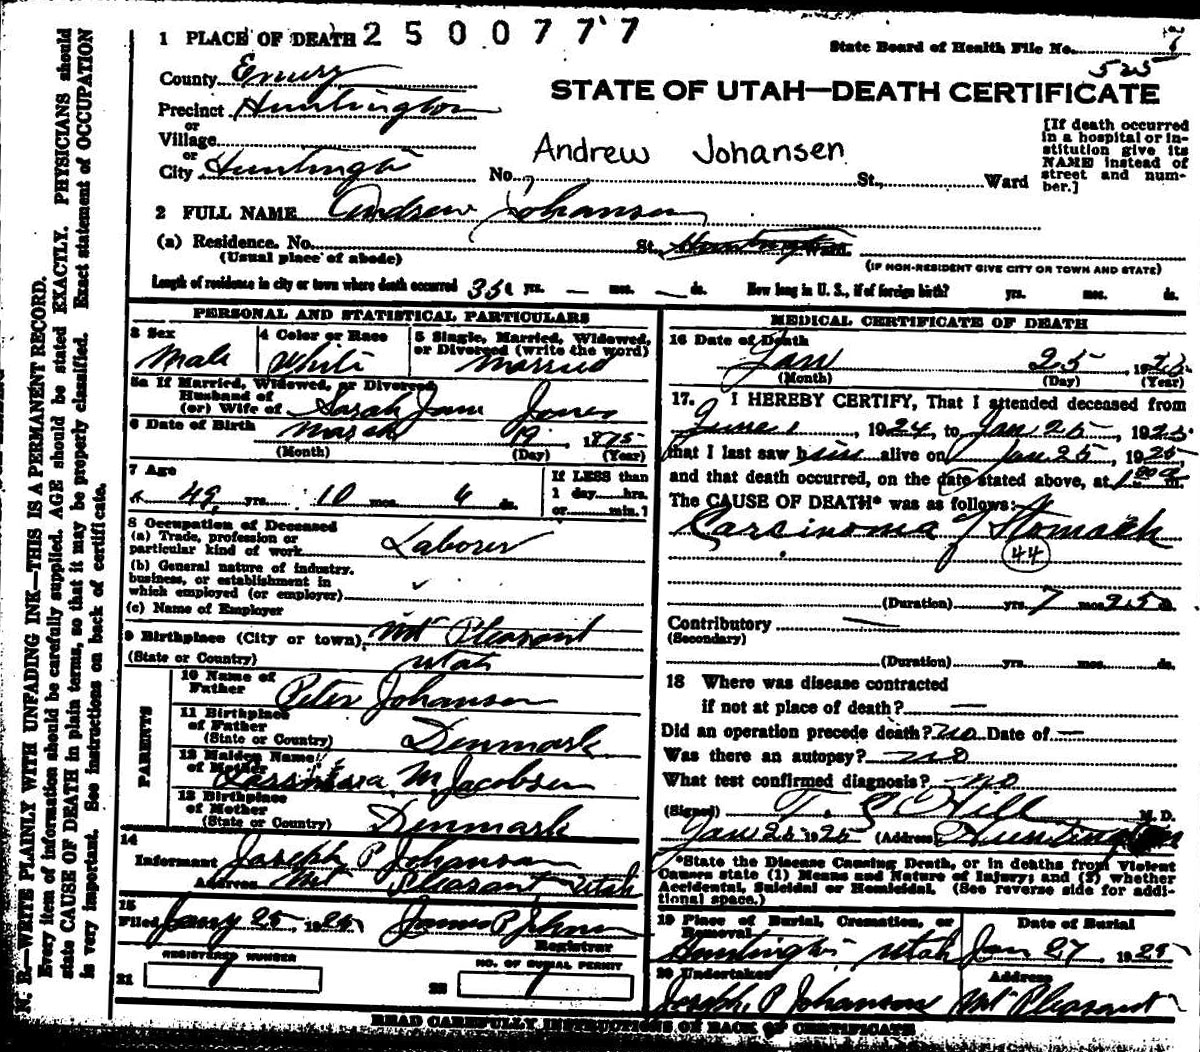 1 PLACE OF DEATH 2500777
State Board of Health File No. 7
County Emery
525
STATE OF UTAH—DEATH CERTIFICATE
Precinct Huntington
or
Village
or
City Huntington No. St., Ward
Andrew Johansen
[If death occurred in a hospital or institution give its NAME instead of street and number.]
2 FULL NAME Andrew Johansen
(a) Residence. No. St. Huntington Ward.
(Usual place of abode)
(IF NON-RESIDENT GIVE CITY OR TOWN AND STATE)
Length of residence in city or town where death occurred 35 yrs. — mos. — ds. How long in U. S., if of foreign birth? yrs. mos. ds.
PERSONAL AND STATISTICAL PARTICULARS
3 Sex
Male
4 Color or Race
White
5 Single, Married, Widowed, or Divorced (write the word)
Married
5a If Married, Widowed, or Divorced
Husband of
(or) Wife of Sarah Jane Jones
6 Date of Birth March 19, 1875
(Month) (Day) (Year)
7 Age
49 yrs. 10 mos. 6 ds.
If LESS than
1 day hrs.
or min.?
8 Occupation of Deceased
(a) Trade, profession or
particular kind of work Laborer
(b) General nature of industry,
business, or establishment in
which employed (or employer)
(c) Name of Employer
9 Birthplace (City or town) Mt Pleasant
(State or Country) Utah
PARENTS
10 Name of
Father Peter Johansen
11 Birthplace
of Father
(State or Country) Denmark
12 Maiden Name
of Mother M. Jacobsen
13 Birthplace
of Mother
(State or Country) Denmark
14
Informant Joseph P Johansen
Address Mt Pleasant Utah
15
Filed Jany 25 1925
Registrar
REGISTERED NUMBER
21 7
NO. OF BURIAL PERMIT
22 7
MEDICAL CERTIFICATE OF DEATH
16 Date of Death
Jan 25, 1925
(Month) (Day) (Year)
17. I HEREBY CERTIFY, That I attended deceased from
June 1, 1924, to Jan 25, 1925.
that I last saw him alive on Jan 25, 1925,
and that death occurred, on the date stated above, at 1 m.
The CAUSE OF DEATH* was as follows:
Carcinoma of Stomach
44
(Duration) yrs. 7 mos. 25 ds.
Contributory —
(Secondary)
(Duration) yrs. mos. ds.
18 Where was disease contracted
if not at place of death? —
Did an operation precede death? no Date of —
Was there an autopsy? no
What test confirmed diagnosis? no
(Signed) T. C. Hill M. D.
Jan 25 1925 (Address) Huntington
*State the Disease Causing Death, or in deaths from Violent
Causes state (1) Means and Nature of Injury; and (2) whether
Accidental, Suicidal or Homicidal. (See reverse side for additional space.)
19 Place of Burial, Cremation, or
Removal
Huntington Utah
Date of Burial
Jan 27, 1925
20 Undertaker
Joseph P Johansen
Address
Mt Pleasant
READ CAREFULLY INSTRUCTIONS ON BACK OF CERTIFICATE
N. B—WRITE PLAINLY WITH UNFADING INK—THIS IS A PERMANENT RECORD.
Every item of information should be carefully supplied. AGE should be stated EXACTLY. PHYSICIANS should
state CAUSE OF DEATH in plain terms, so that it may be properly classified. Exact statement of OCCUPATION
is very important. See instructions on back of certificate.